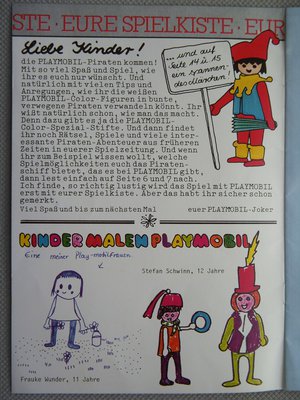 STE · EURE SPIELKISTE · EUR
Liebe Kinder!
die PLAYMOBIL-Piraten kommen!
Mit so viel Spaß und Spiel, wie
ihr es euch nur wünscht. Und
natürlich mit vielen Tips und
Anregungen, wie ihr die weißen
PLAYMOBIL-Color-Figuren in bunte,
verwegene Piraten verwandeln könnt. Ihr
wißt natürlich schon, wie man das macht.
Denn dazu gibt es ja die PLAYMOBIL-
Color-Spezial-Stifte. Und dann findet
ihr noch Rätsel, Spiele und viele inter-
essante Piraten-Abenteuer aus früheren
Zeiten in eurer Spielzeitung. Und wenn
ihr zum Beispiel wissen wollt, welche
Spielmöglichkeiten euch das Piraten-
schiff bietet, das es bei PLAYMOBIL gibt,
dann lest einfach auf Seite 6 und 7 nach.
Ich finde, so richtig lustig wird das Spiel mit PLAYMOBIL
erst mit eurer Spielkiste. Aber das habt ihr sicher schon
gemerkt.
Viel Spaß und bis zum nächsten Mal euer PLAYMOBIL-Joker
... und auf
Seite 14 u. 15
ein spannen-
des Märchen!
KINDER MALEN PLAYMOBIL
Eine meiner Play-mobilfrauen
Stefan Schwinn, 12 Jahre
Frauke Wunder, 11 Jahre